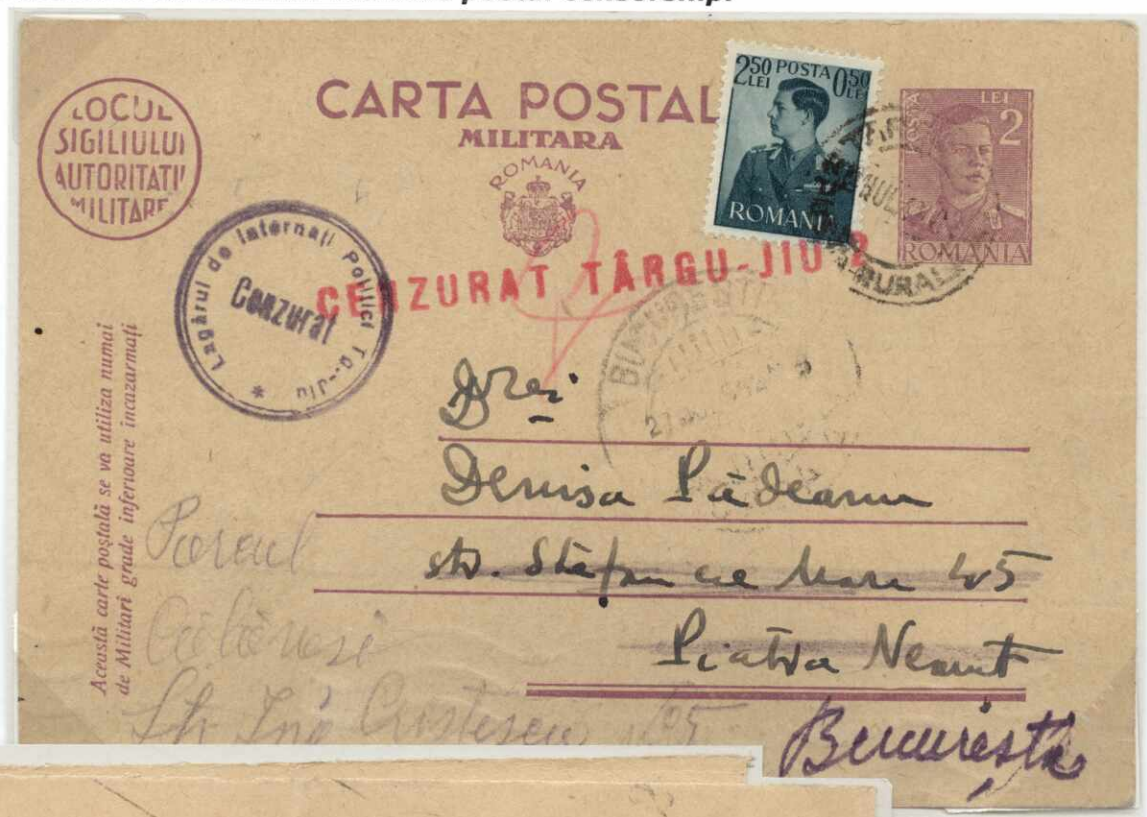 postal censorship.
LOCUL
SIGILIULUI
AUTORITATII
MILITARE
CARTA POSTAL
MILITARA
ROMANIA
2 50 LEI POSTA 0 50 LEI
ROMANIA
POSTA LEI 2
ROMANIA
Lagărul de Internați Politici Tg.-Jiu *
Cenzurat
CENZURAT TÂRGU-JIU 2
BUCUREȘTI
27
Această carte poștală se va utiliza numai
de Militari grade inferioare încazarmați
D-rei
Denisa Pădeanu
str. Ștefan cel Mare 45
Piatra Neamț
București
Parcul
Str. Ing Cristescu